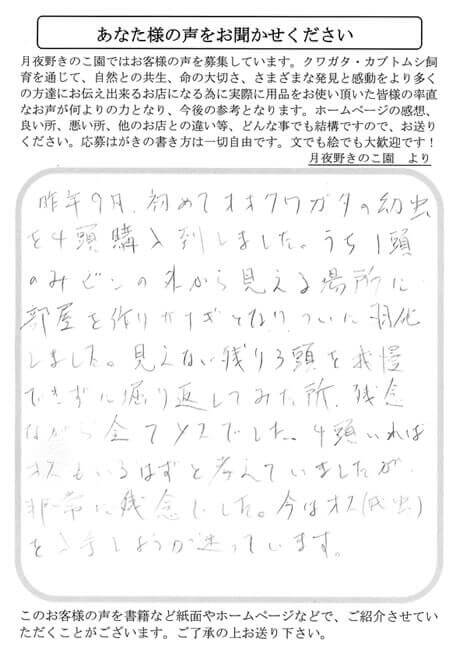 あなた様の声をお聞かせください
月夜野きのこ園ではお客様の声を募集しています。クワガタ・カブトムシ飼
育を通じて、自然との共生、命の大切さ、さまざまな発見と感動をより多く
の方達にお伝え出来るお店になる為に実際に用品をお使い頂いた皆様の率直
なお声が何よりの力となり、今後の参考となります。ホームページの感想、
良い所、悪い所、他のお店との違い等、どんな事でも結構ですので、お送り
ください。応募はがきの書き方は一切自由です。文でも絵でも大歓迎です！
月夜野きのこ園 より
昨年9月、初めてオオクワガタの幼虫
を4頭購入致しました。うち1頭
のみビンの外から見える場所に
部屋を作りサナギとなり、ついに羽化
しました。見えない残り3頭を我慢
できずに掘り返してみた所、残念
ながら全てメスでした。4頭いれば
オスもいるはずと考えていましたが、
非常に残念でした。今はオス(成虫)
を入手しようか迷っています。
このお客様の声を書籍など紙面やホームページなどで、ご紹介させてい
ただくことがございます。ご了承の上お送り下さい。